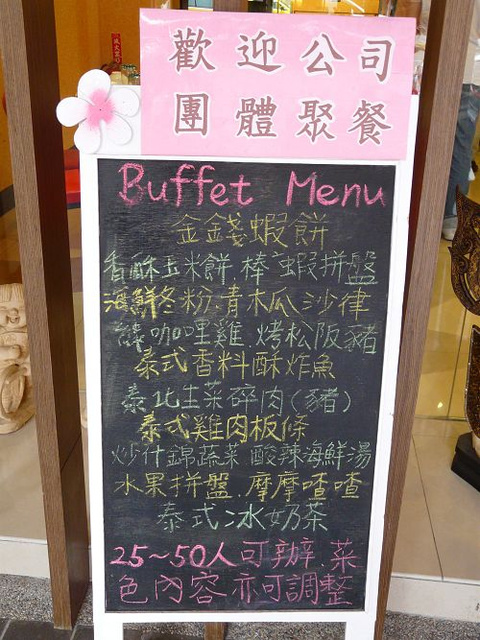 歡迎公司
團體聚餐
Buffet Menu
金錢蝦餅
香酥玉米餅.棒蝦拼盤
海鮮冬粉.青木瓜沙律
綠咖哩雞.烤松阪豬
泰式香料酥炸魚
泰北生菜碎肉(豬)
泰式雞肉板條
炒什錦蔬菜 酸辣海鮮湯
水果拼盤.摩摩喳喳
泰式冰奶茶
25~50人可辦.菜
色內容亦可調整